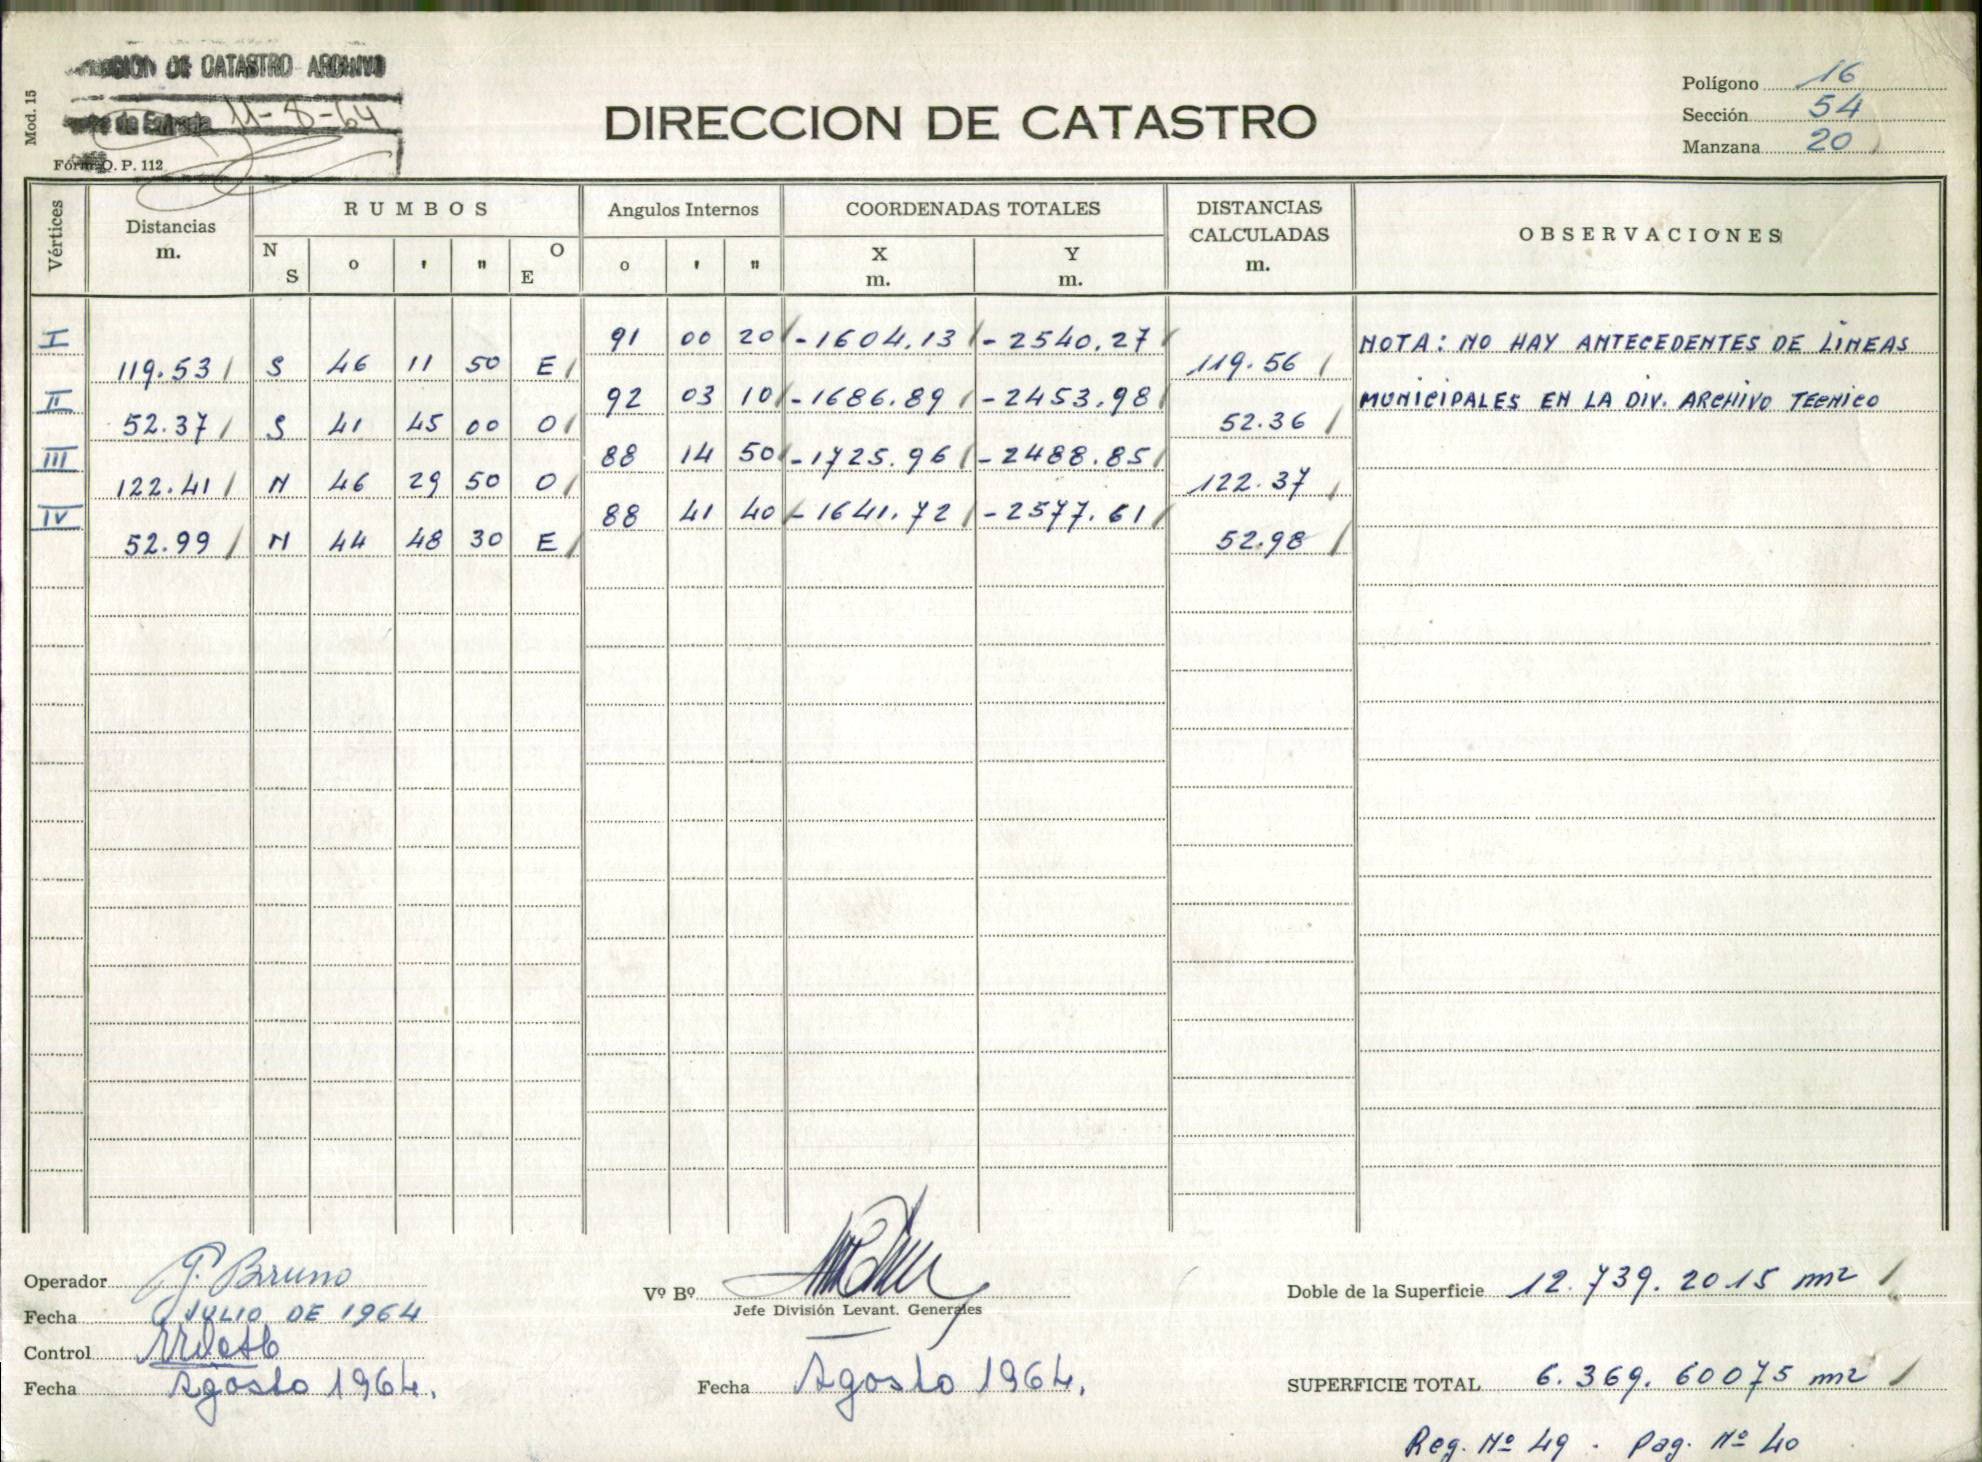 DE CATASTRO ARCHIVO
de Entrada 11-8-64
Mod. 15
Fórm. O. P. 112
DIRECCION DE CATASTRO
Polígono 16
Sección 54
Manzana 20
Vértices
Distancias m.
RUMBOS
N S o ' " O E
Angulos Internos
o ' "
COORDENADAS TOTALES
X m. Y m.
DISTANCIAS CALCULADAS m.
OBSERVACIONES
I 91 00 20 -1604.13 -2540.27
NOTA: NO HAY ANTECEDENTES DE LINEAS
119.53 S 46 11 50 E 119.56
II 92 03 10 -1686.89 -2453.98
MUNICIPALES EN LA DIV. ARCHIVO TECNICO
52.37 S 41 45 00 O 52.36
III 88 14 50 -1725.96 -2488.85
122.41 N 46 29 50 O 122.37
IV 88 41 40 -1641.72 -2577.61
52.99 N 44 48 30 E 52.98
Operador G. Bruno
Fecha JULIO DE 1964
Control
Fecha Agosto 1964.
Vº Bº
Jefe División Levant. Generales
Fecha Agosto 1964.
Doble de la Superficie 12.739.2015 m2
SUPERFICIE TOTAL 6.369.60075 m2
Reg. Nº 49 . Pag. Nº 40